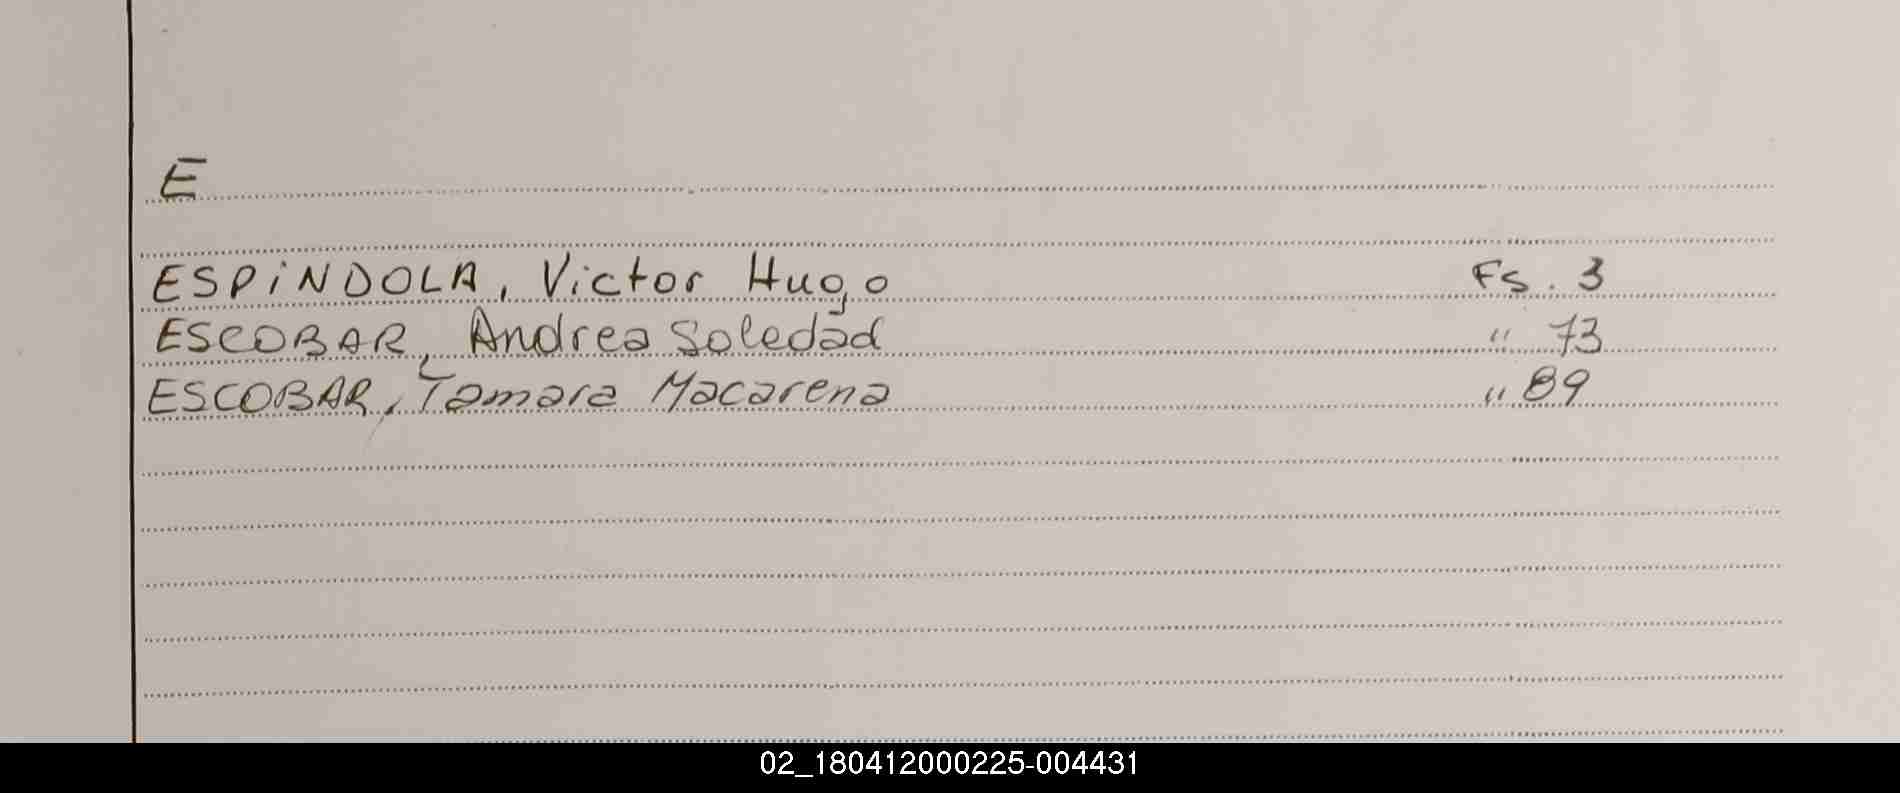 E
ESPiNDOLA, Victor Hugo Fs. 3
ESCOBAR, Andrea Soledad " 73
ESCOBAR, Tamara Macarena " 89
02_180412000225-004431